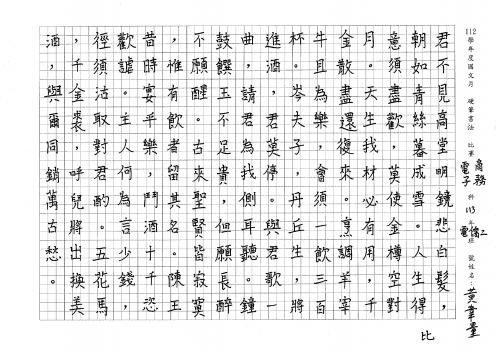 112學年度國文月 硬筆書法 比賽 電子商務科 113年 班 號姓名:黃韋量
君不見高堂明鏡悲白髮，
朝如青絲暮成雪。人生得
意須盡歡，莫使金樽空對
月。天生我材必有用，千
金散盡還復來。烹調羊宰
牛且為樂，會須一飲三百
杯。岑夫子，丹丘生，將
進酒，君莫停。與君歌一
曲，請君為我側耳聽。鐘
鼓饌玉不足貴，但願長醉
不願醒。古來聖賢皆寂寞
，惟有飲者留其名。陳王
昔時宴平樂，鬥酒十千恣
歡謔。主人何為言少錢，
徑須沽取對君酌。五花馬
，千金裘，呼兒將出換美
酒，與爾同銷萬古愁。
比